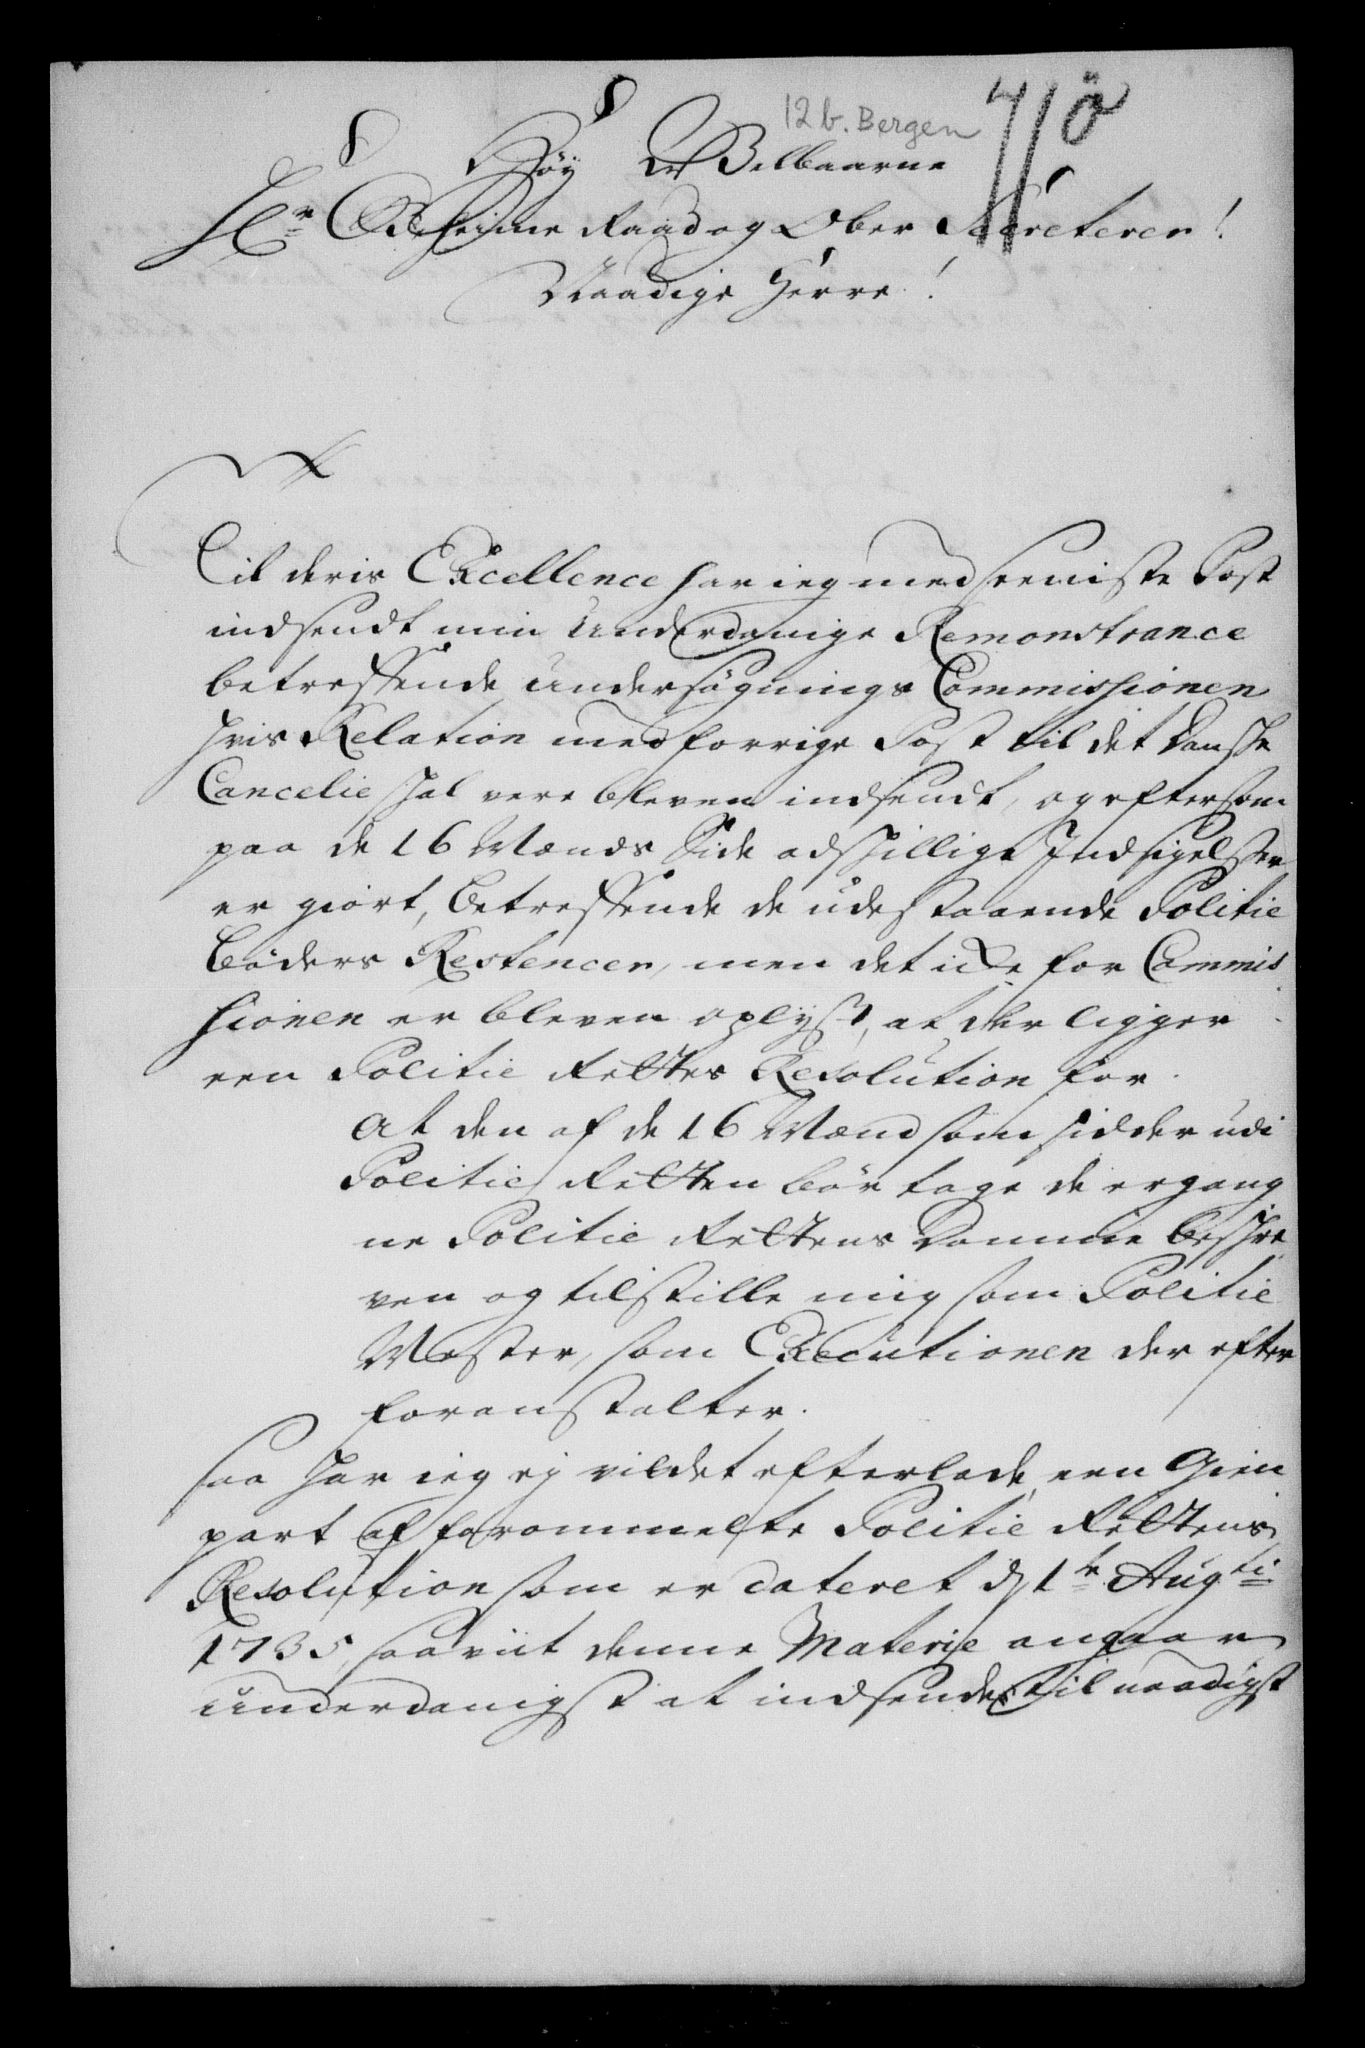 12 b. Bergen
Høy Velbaarne
Hr Geheime Raad og Ober Secreterer!
Naadige Herre!
Til deris Excellence har ieg med seeniste Post
indsendt min Underdanige Remonstrance
betreffende Undersøgnings Commissionen
hvis Relation med forrige Post til det Danske
Cancelie skal vere bleven indsendt, og eftersom
paa de 16 Mænds Side adskillige Indsigelser
er giort, betreffende de udestaaende Politie
bøders Restencer, men det icke for Commis
sionen er bleven oplyst, at der ligger
een Politie Rettes Resolution for
At den af de 16 Mænd som sidder udi
Politie Retten bør tage de ergang
ne Politie Rettens Domme beskre
ven og tilstille mig som Politie
Mester, som Executionen der efter
foranstalter.
saa har ieg ej vildet efterlade een Gien
part af forommelte Politie Rettens
Resolution som er dateret d 1te Augti
1735, saavit denne Materie angaar
Underdanigst at indsende til naadigst